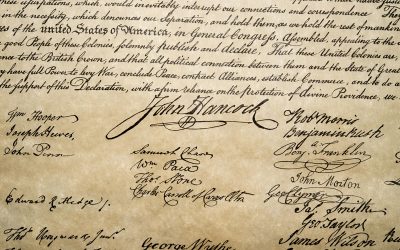 these usurpations, which would inevitably interrupt our connections and correspondence. They
in the necessity, which denounces our Separation, and hold them, as we hold the rest of mankind
of the united States of America, in General Congress, Assembled, appealing to the
good People of these Colonies, solemnly publish and declare, That these United Colonies are,
iance to the British Crown, and that all political connection between them and the State of Great
have full Power to levy War, conclude Peace, contract Alliances, establish Commerce, and to do a
the support of this Declaration, with a firm reliance on the protection of divine Providence, we
John Hancock
Wm Hooper
Joseph Hewes,
John Penn
Edward Rutledge /.
Thos Heyward Junr.
Samuel Chase
Wm Paca
Thos. Stone
Charles Carroll of Carrollton
George Wythe
Robt Morris
Benjamin Rush
Benj. Franklin
John Morton
Geo Clymer
Jas. Smith
Geo. Taylor
James Wilson